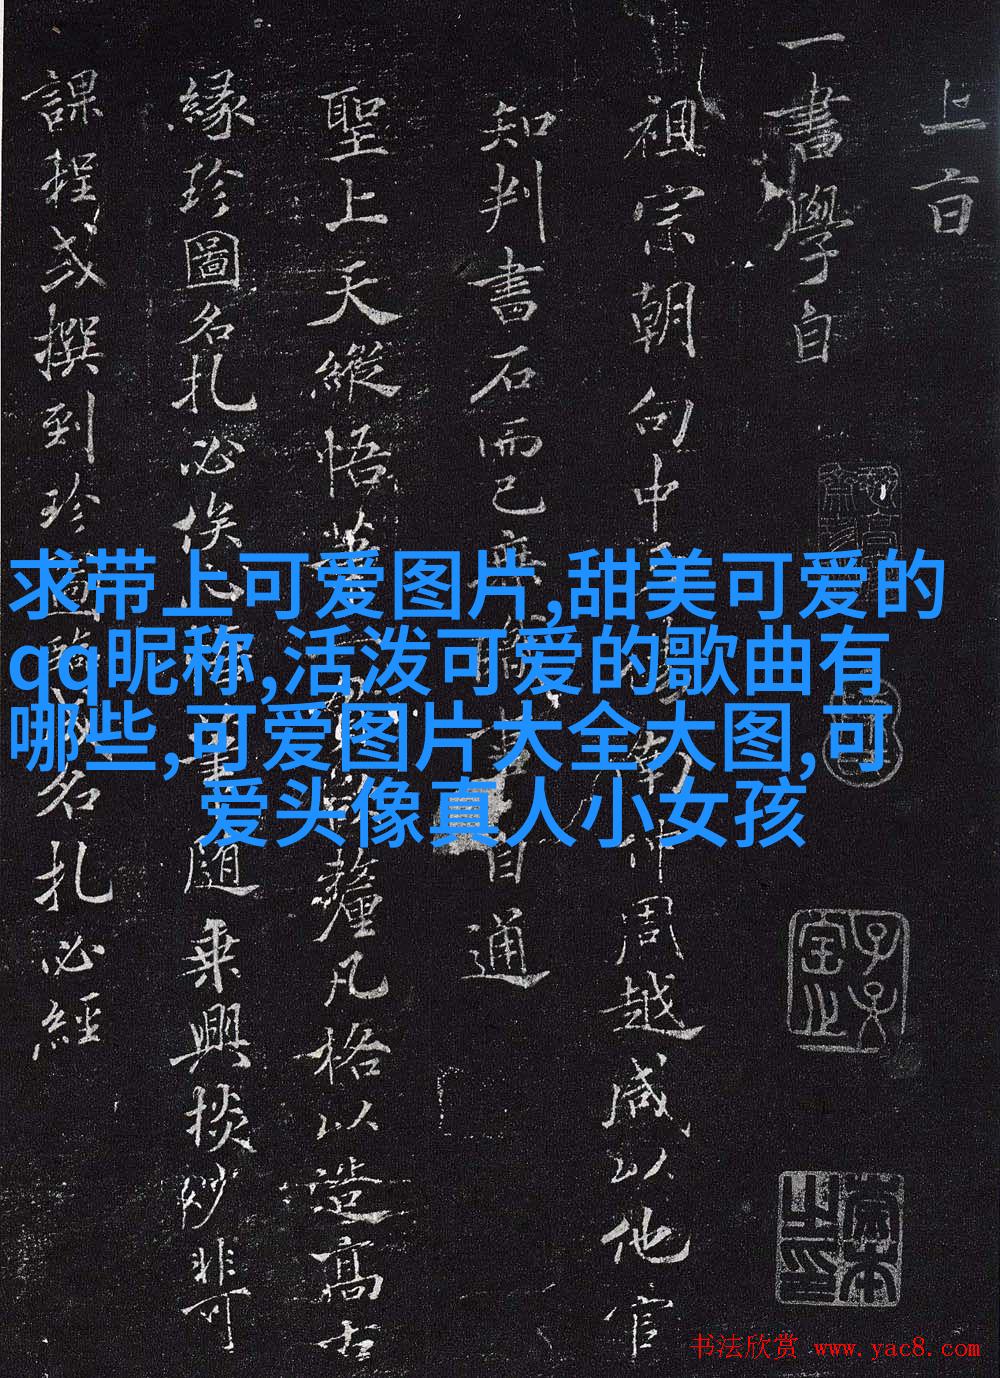 上亩
一書學自
祖宗朝向中
南仲周越咸以他官
知判書石而已無
書自通
聖上天縱悟
釐凡格以造高古
緣珍圖名札必俟
隨乗興掞妙非可
課程或撰到珍圖
名札必經
求带上可爱图片,甜美可爱的
qq昵称,活泼可爱的歌曲有
哪些,可爱图片大全大图,可
爱头像真人小女孩
书法欣赏 www.yac8.com